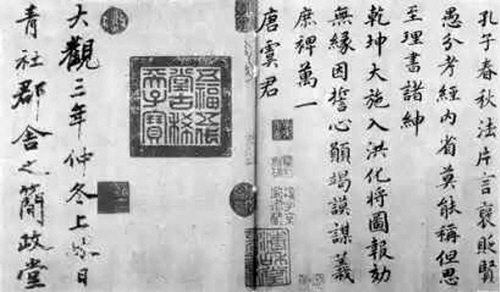 孔子春秋法片言襃貶賢
愚分考經内省莫能稱但思
至理書諸紳
乾坤大施入洪化將圖報効
無緣因誓心願竭謨謀義
庶裨萬一
唐虞君
五福五代
堂古稀
天子寶
大觀三年仲冬上 日
青社郡舍之簡政堂